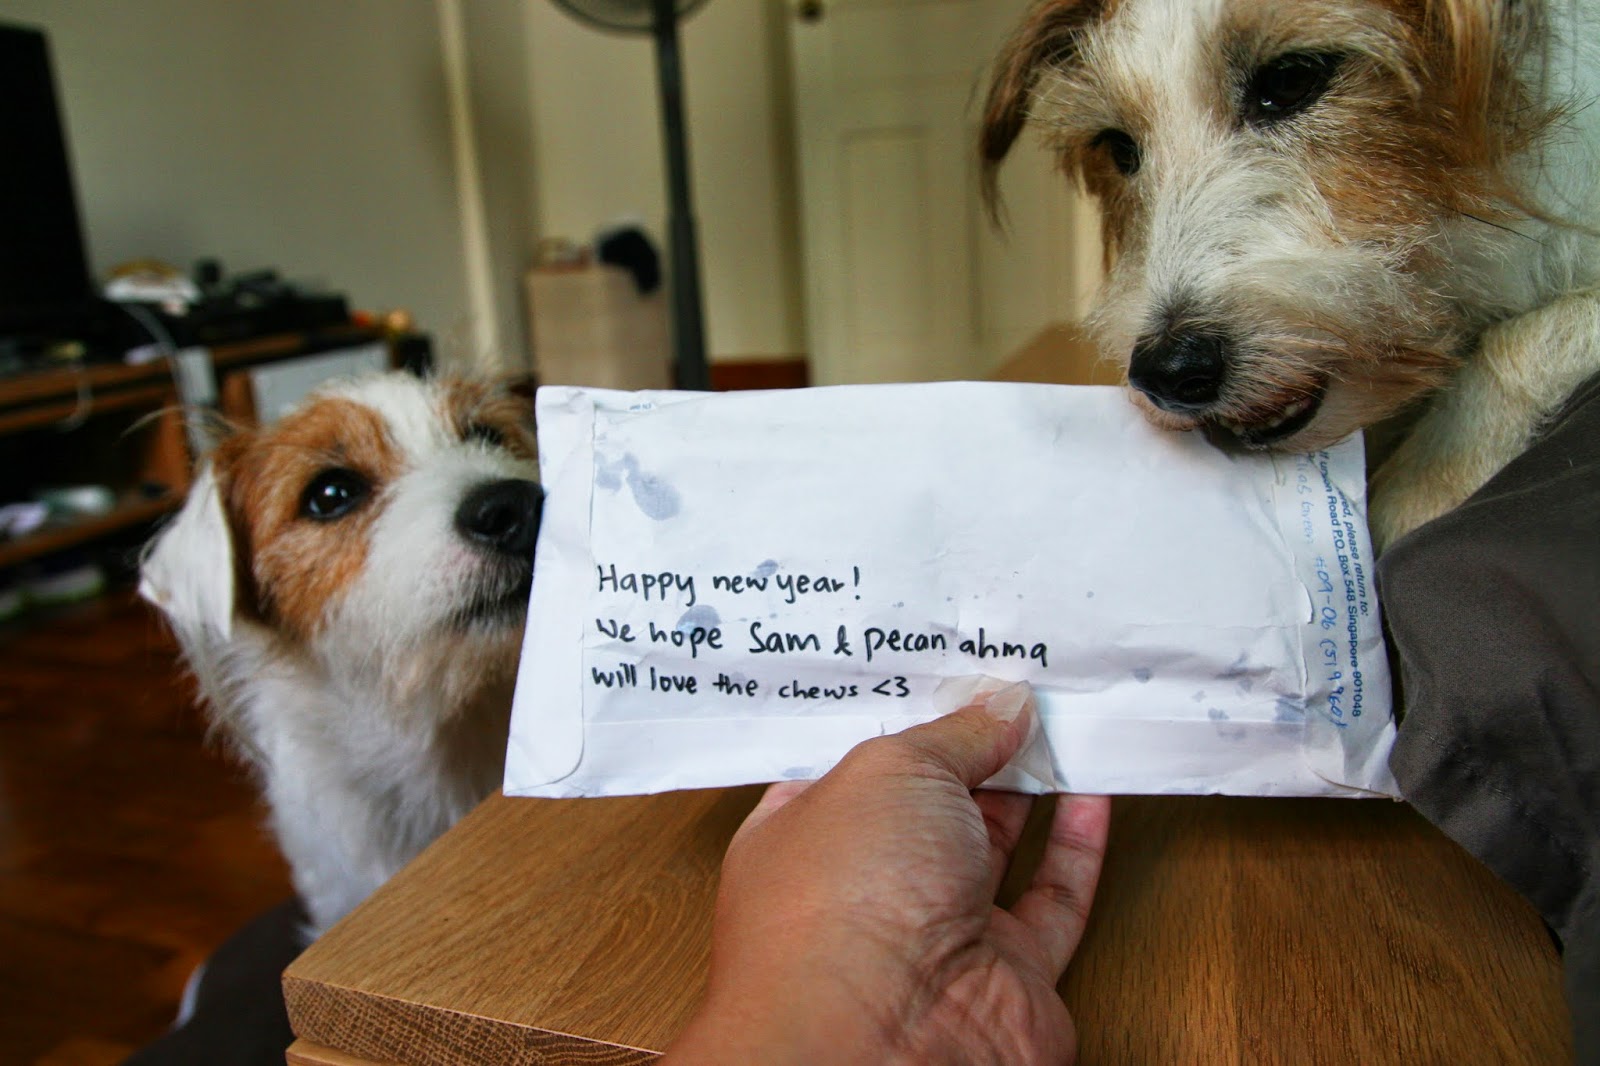 Happy new year!
We hope Sam & pecan ahma
will love the chews <3
please return to:
Road P.O. Box 548 Singapore 901048
Green #09-06